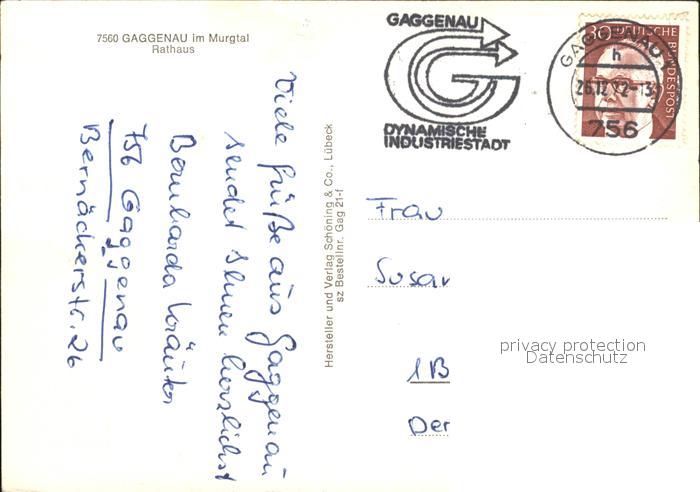 7560 GAGGENAU im Murgtal
Rathaus
Viele Grüße aus Gaggenau
sendet Ihnen herzlichst
Bernharda
756 Gaggenau
Bernäckerstr. 26
Hersteller und Verlag Schöning & Co., Lübeck
sz Bestellnr. Gag 21-f
GAGGENAU
DYNAMISCHE
INDUSTRIESTADT
30 DEUTSCHE
BUNDESPOST
GAGGENAU
h
756
Frau
Susan
1B
Der
privacy protection
Datenschutz